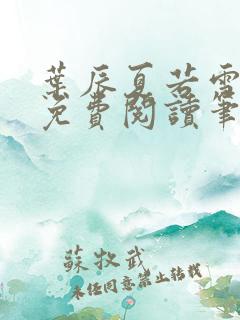 葉辰夏若雪
免費閱讀筆
蘇牧武
未经同意禁止转载